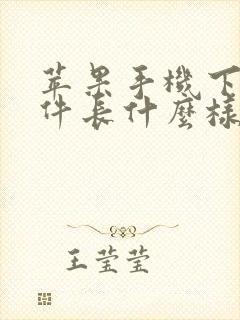 苹果手機下
件長什麼樣
王莹莹